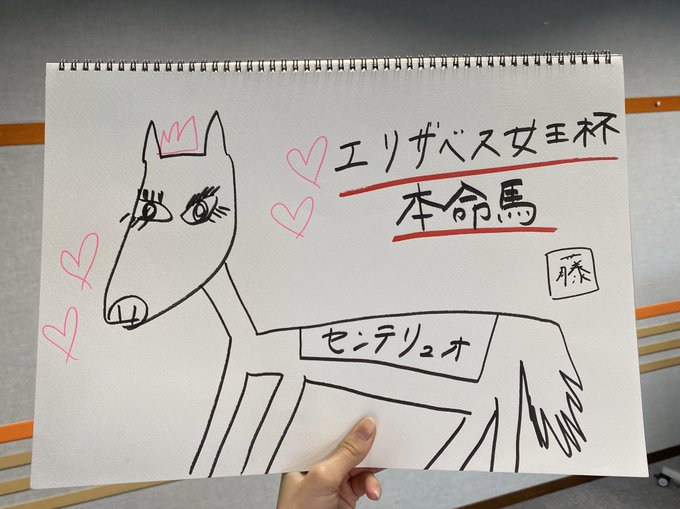 エリザベス女王杯
本命馬
藤
センテリュオ